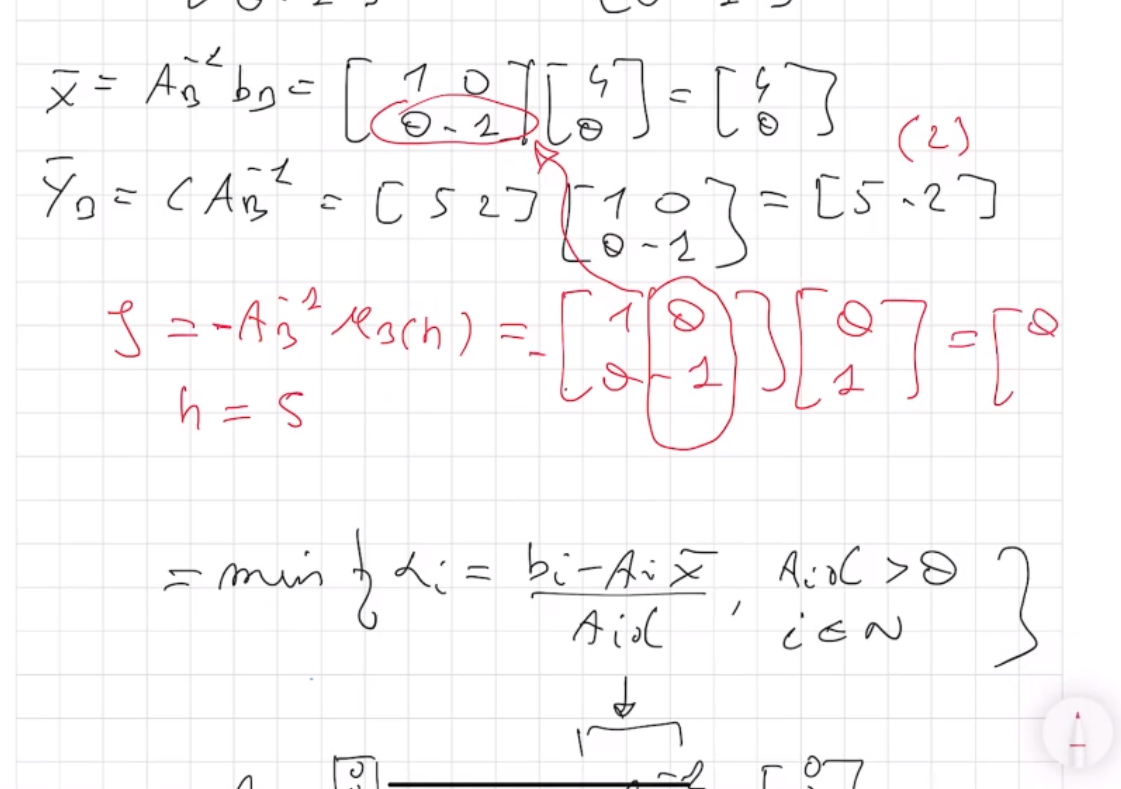 x̄ = A_B^-1 b_B = [1 0; 0 -1] [4; 0] = [4; 0]
(2)
ȳ_B = C A_B^-1 = [5 2] [1 0; 0 -1] = [5 -2]
ξ = -A_B^-1 u_B(h) = -[1 0; 0 -1] [0; 1] = [0
h = 5
= min { λi = (bi - Ai x̄) / (Ai ξ), Ai ξ > 0, i ∈ N }